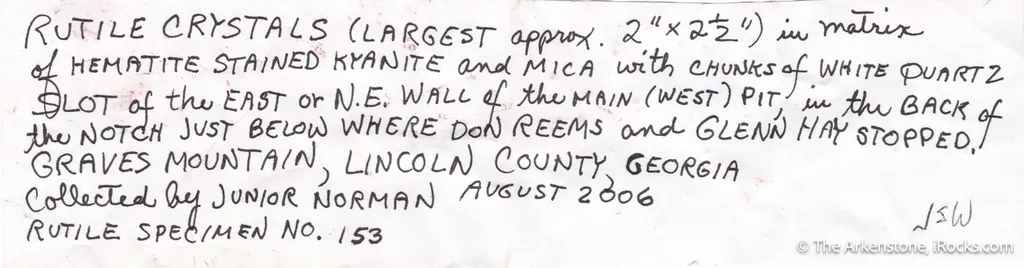 RUTILE CRYSTALS (LARGEST approx. 2" x 2½") in matrix
of HEMATITE STAINED KYANITE and MICA with CHUNKS of WHITE QUARTZ
SLOT of the EAST or N.E. WALL of the MAIN (WEST) PIT, in the BACK of
the NOTCH JUST BELOW WHERE DON REEMS and GLENN HAY STOPPED!
GRAVES MOUNTAIN, LINCOLN COUNTY, GEORGIA
Collected by JUNIOR NORMAN AUGUST 2006
RUTILE SPECIMEN NO. 153
JSW
© The Arkenstone, iRocks.com